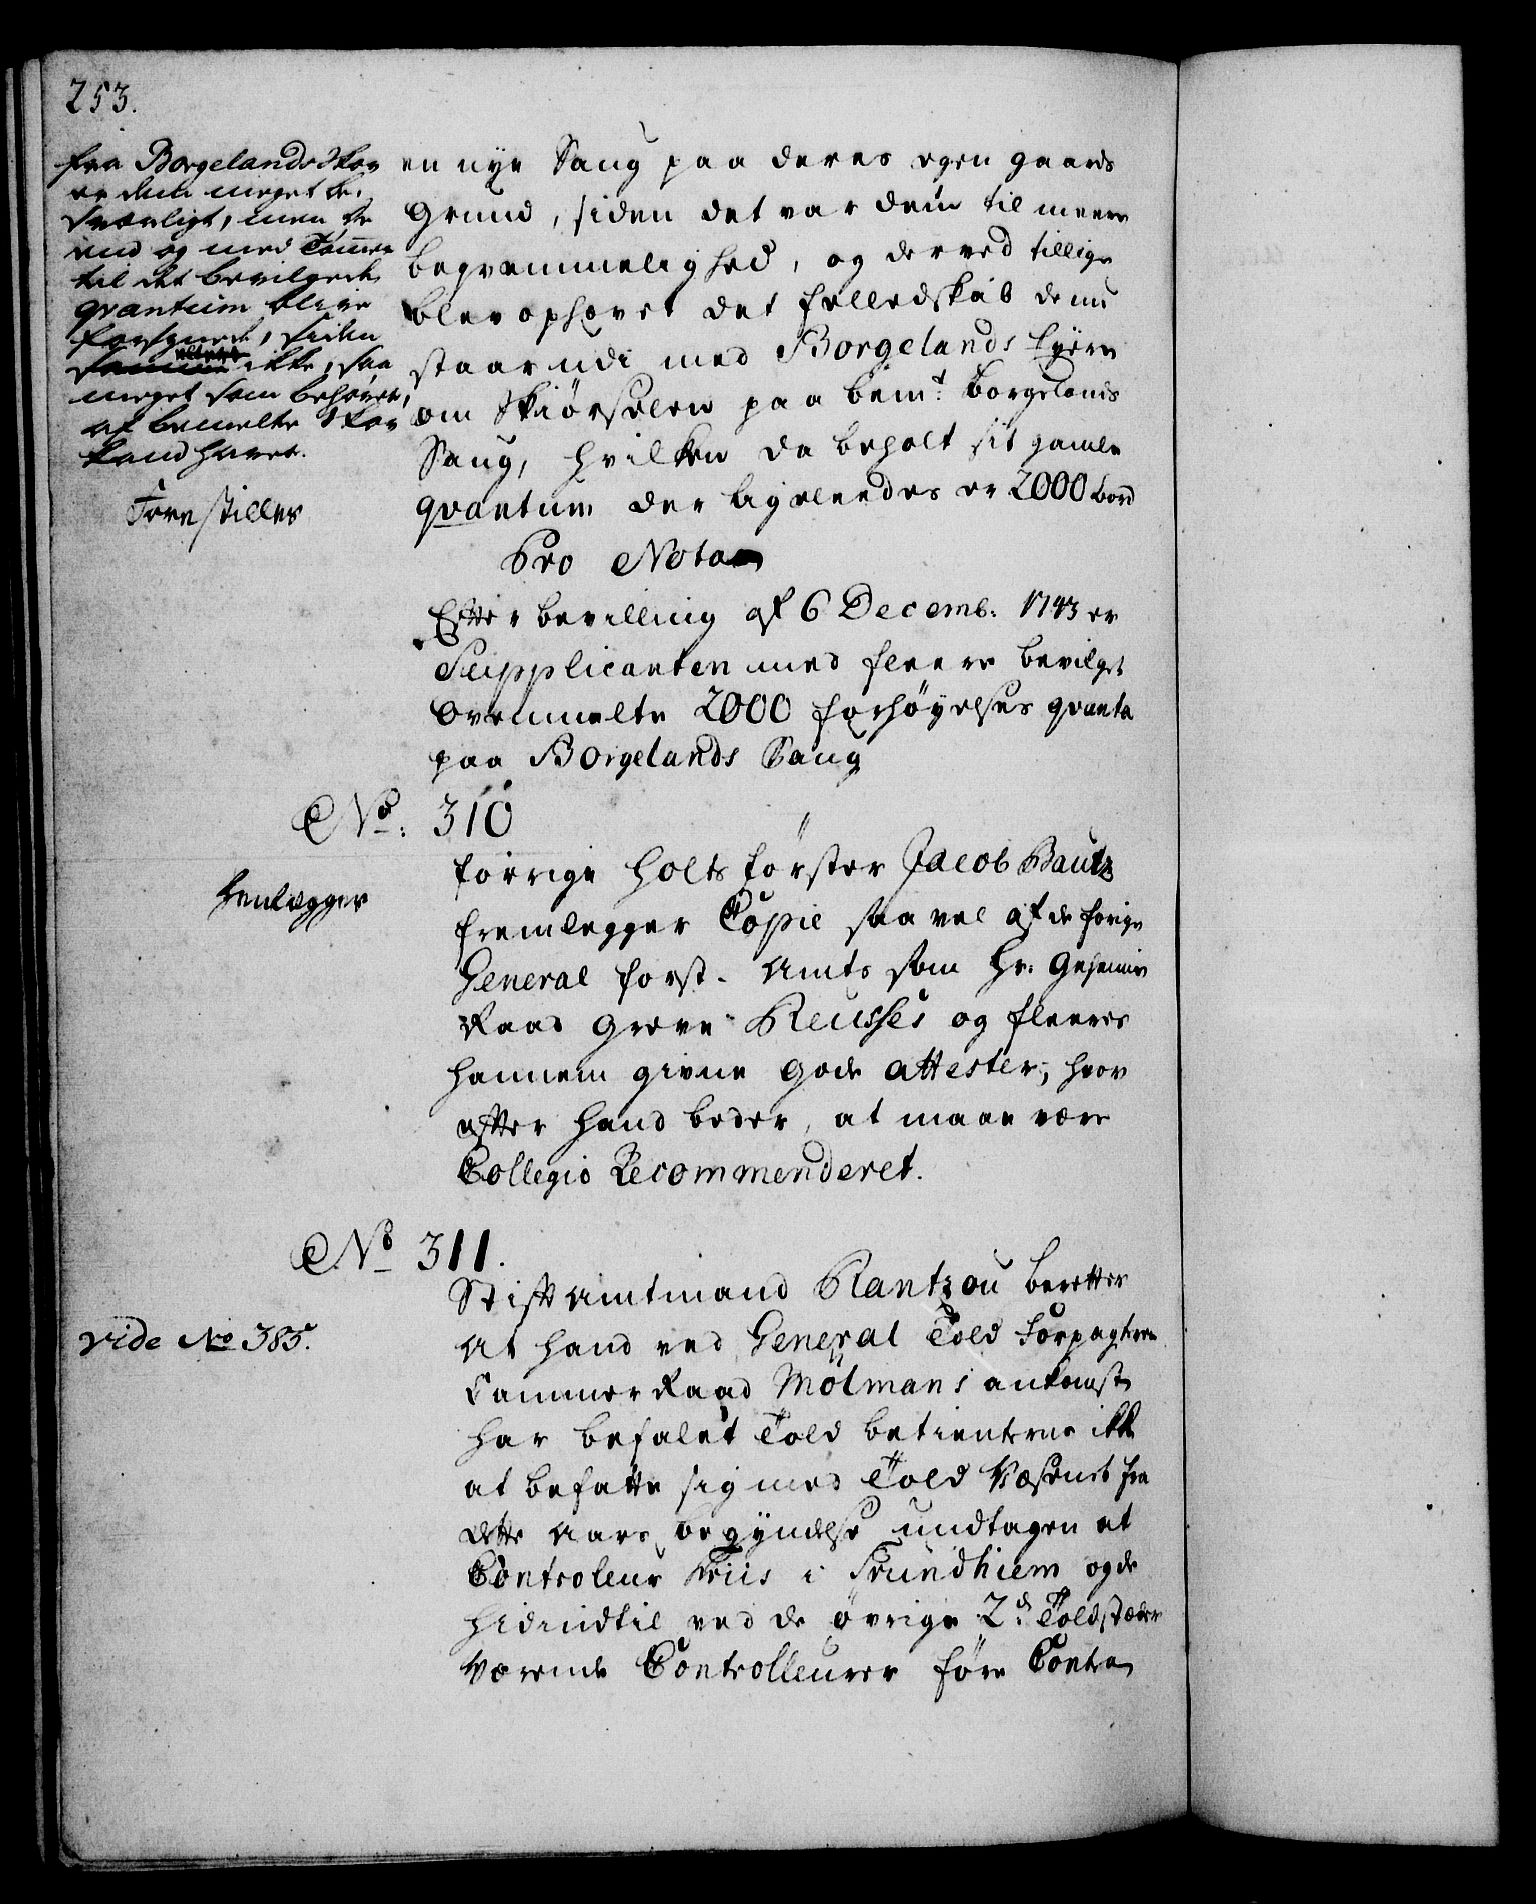 253.
fra Borgelands Skov
er dem meget be¬
sværligt, men de
end og med Tømmer
til det bevilgede
qvantum blive
forsynet, siden
ikke, saa
meget som behøves,
af bemelte Skov
kand haves.
Forestilles
en nye Saug paa deres egen gaards
Grund, siden det var dem til meere
beqvemmelighed, og derved tillige
blev ophævet det fælledskab de nu
staar udi med Borgelands Eyere
om Skiørselen paa bemt. Borgelands
Saug, hvilken da beholt sit gamle
qvantum der ligeleedes er 2000 bord
Pro Nota
Efter bevilling af 6 Decemb: 1743 er
Supplicanten med fleere bevilget
Ovenmelte 2000 forhøyelses qvanta
paa Borgelands Saug
No: 310
Henlægges
forrige Holtzførster Jacob Bautz
fremlegger Copie saa vel af de forige
General forst-Amts som Hr. Geheime
Raad Greve Reusses og fleeres
hannem givne gode attester, hvor
efter hand beder, at maae være
Collegio Recommenderet.
No 311.
vide No 385.
Stiftamtmand Rantzou beretter
At hand ved General Told Forpagteren
Cammer Raad Mölmans ankomst
har befalet Told betienterne ikke
at befatte sig med Told Væsenet fra
dette Aars begyndelse undtagen at
Controleur Friis i Trundhiem og de
hidindtil ved de øvrige 2de Toldstæder
værende Controlleurer føre Contra